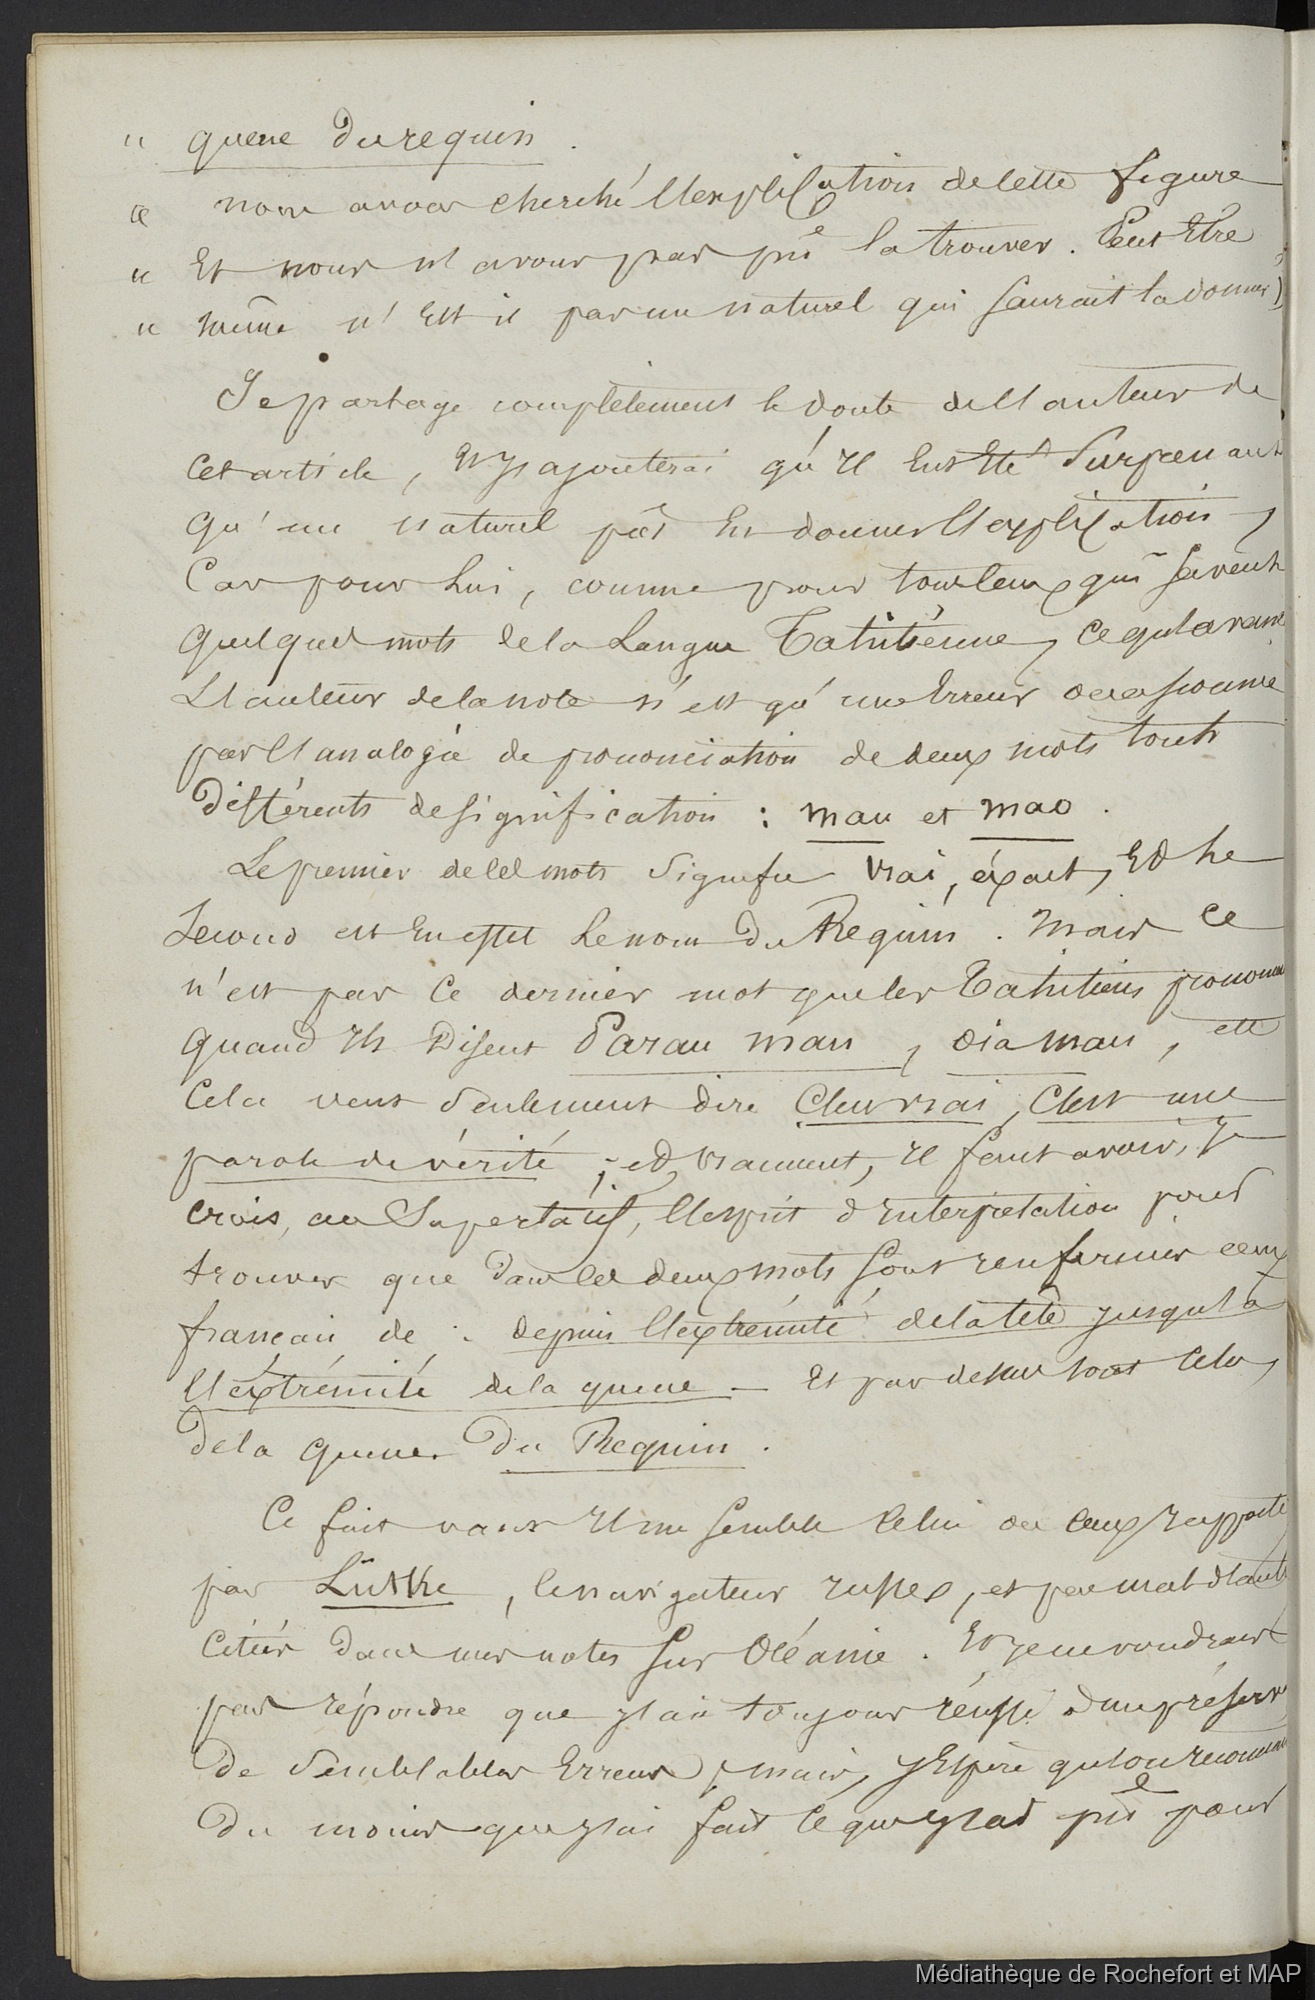 " queue du requin.
" nous avons cherché l'explication de cette figure
" et nous n'avons pas pu la trouver. Peut être
" même n'est il pas un naturel qui saurait la donner)
Je partage complètement le doute de l'auteur de
cet article, et j'ajouterai qu'il eut été surprenant
qu'un naturel pût en donner l'explication,
car pour lui, comme pour tous ceux qui savent
quelques mots de la langue Tahitienne, ce qu'avance
l'auteur de la note n'est qu'une erreur occasionnée
par l'analogie de prononciation de deux mots touts
différents de signification : mau et mao.
Le premier de ces mots signifie vrai, éxact, et le
second est en effet le nom du Requin. Mais ce
n'est pas ce dernier mot que les Tahitiens prononcent
quand ils disent Parau mau, oia mau, ett
Cela veut seulement dire C'est vrai, C'est une
parole de vérité ; et, vraiment, il faut avoir, je
crois, au Superlatif, l'esprit d'interprétation pour
trouver que dans ces deux mots sont renfermés ceux
français de : depuis l'extrémité de la tête jusqu'à
l'extrémité de la queue — et par dessus tout cela,
de la queue du Requin.
Ce fait vaut il me semble celui ou ceux rapportés
par Lütke, le navigateur russe, et pas mal d'autres
cités dans mes notes sur Océanie. Et je ne voudrais
pas répondre que j'ai toujours réussi à me préserver
de semblables erreurs ; mais, j'espère qu'on reconnaîtra
du moins que j'ai fait ce que j'ai pu pour
Médiathèque de Rochefort et MAP